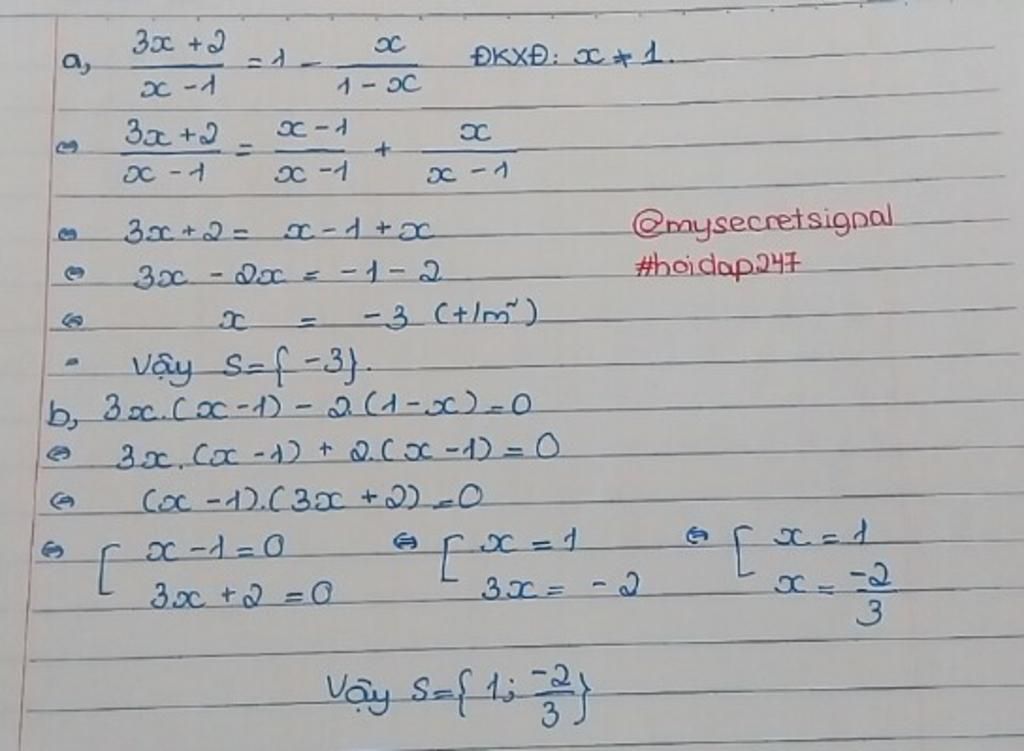 a, (3x + 2)/(x - 1) = 1 - x/(1 - x) ĐKXĐ: x ≠ 1.
⇔ (3x + 2)/(x - 1) = (x - 1)/(x - 1) + x/(x - 1)
⇔ 3x + 2 = x - 1 + x
@mysecretsignal
⇔ 3x - 2x = -1 - 2
#hoidap247
⇔ x = -3 (t/m)
- Vậy S = { -3}.
b, 3x.(x - 1) - 2.(1 - x) = 0
⇔ 3x.(x - 1) + 2.(x - 1) = 0
⇔ (x - 1).(3x + 2) = 0
⇔ [ x - 1 = 0 ⇔ [ x = 1 ⇔ [ x = 1
3x + 2 = 0 3x = -2 x = -2/3
Vậy S = { 1; -2/3 }